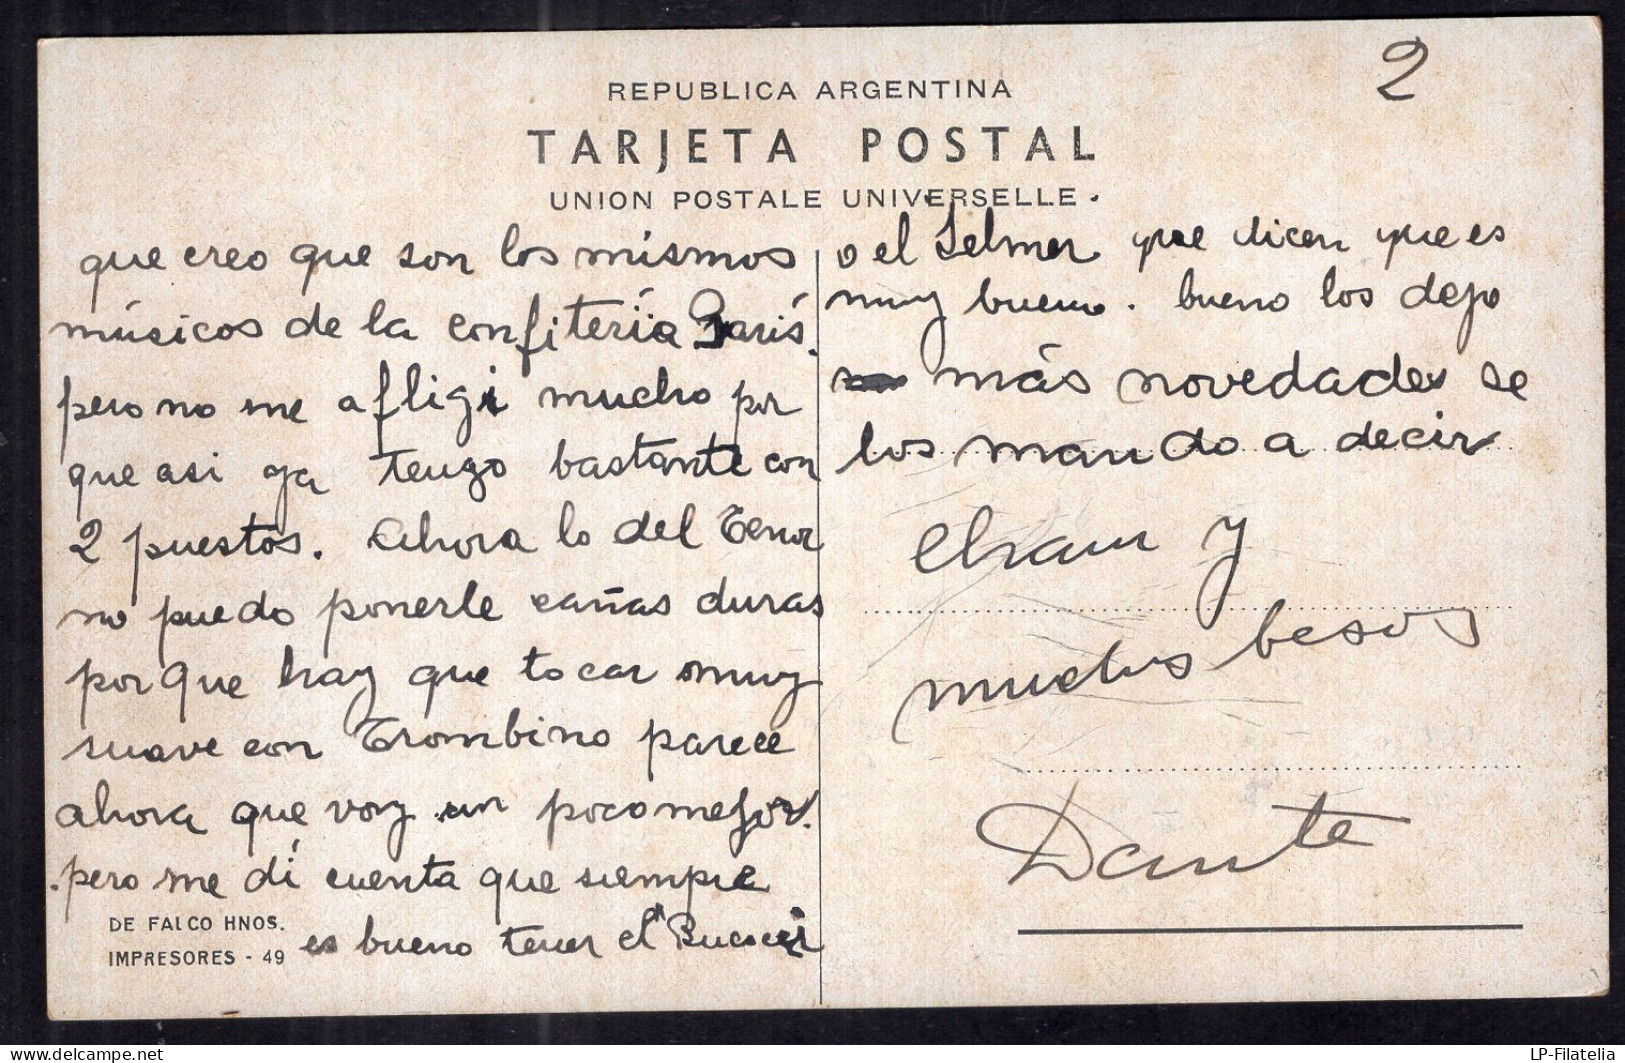 2
REPUBLICA ARGENTINA
TARJETA POSTAL
UNION POSTALE UNIVERSELLE.
que creo que son los mísmos
músicos de la confitería París.
pero no me afligi mucho por
que asi ya tengo bastante con
2 puestos. Ahora lo del Tenor
no puedo ponerle cañas duras
porque hay que tocar muy
suave con Trombino parece
ahora que voy un poco mejor.
pero me dí cuenta que siempre
es bueno tener el
DE FALCO HNOS.
IMPRESORES - 49
o el Selmer que dicen que es
muy bueno. bueno los dejo
más novedades se
los mando a decir
Chau y
muchos besos
Dante
delcampe.net
LP-Filatelia